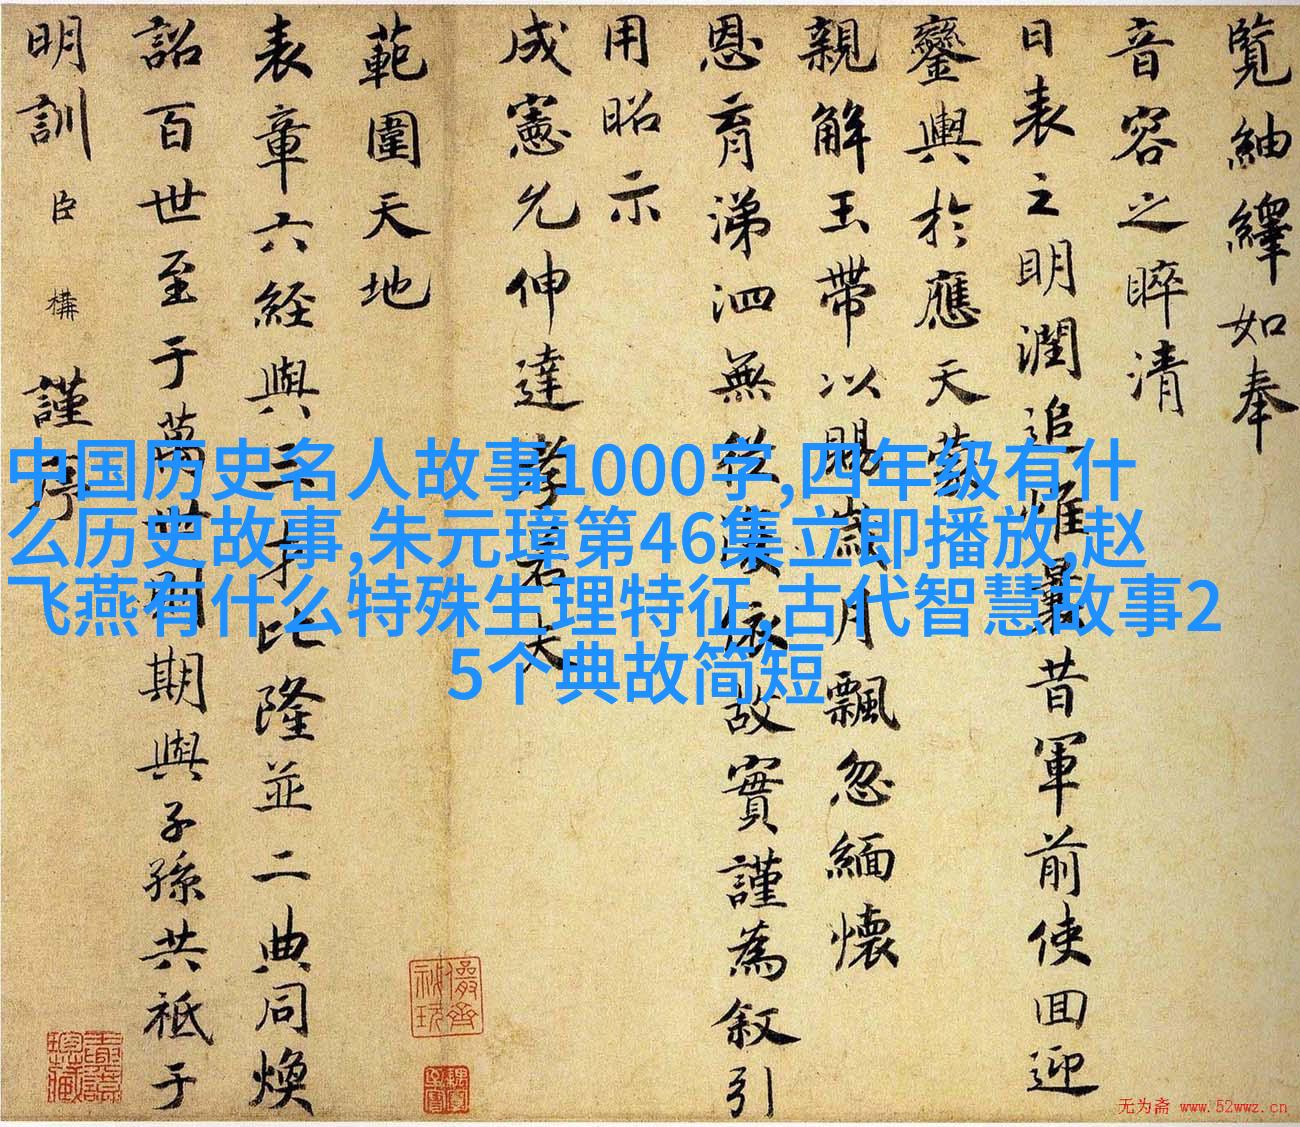 覽紬繹如奉
音容之睟清
日表之明潤追
昔軍前使回迎
鑾輿於應天
親解玉帶以賜
月飄忽緬懷
恩育涕泗無從
故實謹為叙引
用昭示
成憲允伸達孝
範圍天地
表章六經與三
比隆並二典同煥
詔百世至于萬世
期與子孫共祗于
明訓臣構謹序
中国历史名人故事1000字,四年级有什
么历史故事,朱元璋第46集立即播放,赵
飞燕有什么特殊生理特征,古代智慧故事2
5个典故简短
无为斋 www.52wwz.cn